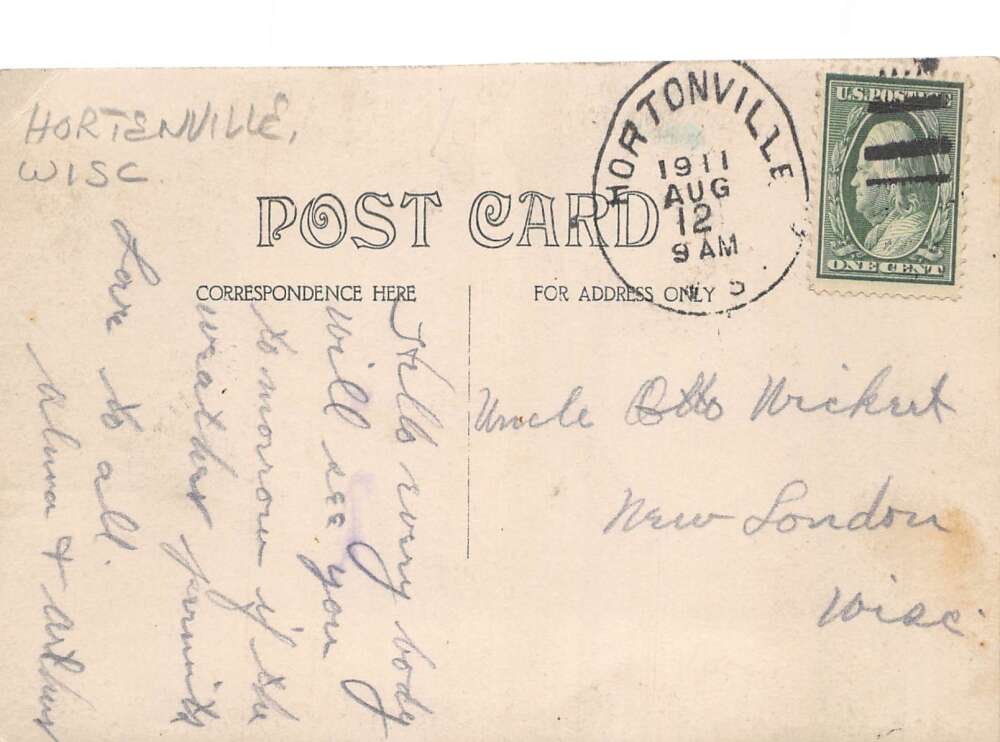 HORTENVILLE,
WISC.
POST CARD
CORRESPONDENCE HERE
FOR ADDRESS ONLY
HORTONVILLE
1911
AUG
12
9 AM
U.S. POSTAGE
ONE CENT
Hello every body
will see you
to morrow if the
weather permits
Love to all.
& Arthur
Uncle Otto
New London
Wisc.